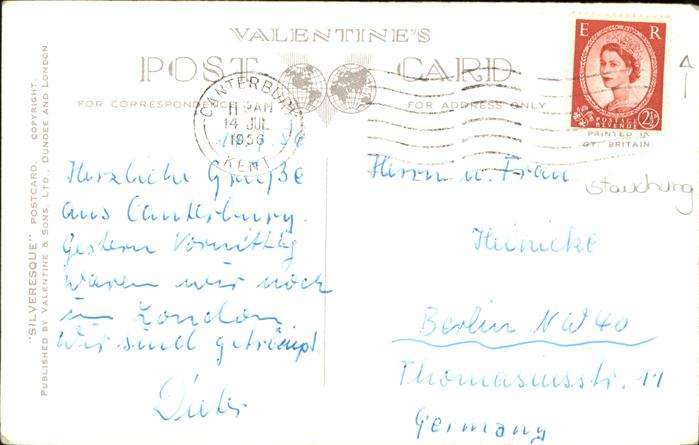 VALENTINE'S
POST CARD
FOR CORRESPONDENCE
FOR ADDRESS ONLY
CANTERBURY
11 30 AM
14 JUL
1956
KENT
E R
POSTAGE REVENUE
2½
PRINTED IN
BRITAIN
Stauchung
Herzliche Grüße
aus Canterbury.
Gestern Vormittag
waren wir noch
in London
Wir sind
Dieter
Herrn u. Frau
Heinicke
Berlin NW 40
Thomasiusstr. 11
Germany
"SILVERESQUE" POSTCARD. COPYRIGHT.
PUBLISHED BY VALENTINE & SONS. LTD., DUNDEE AND LONDON.